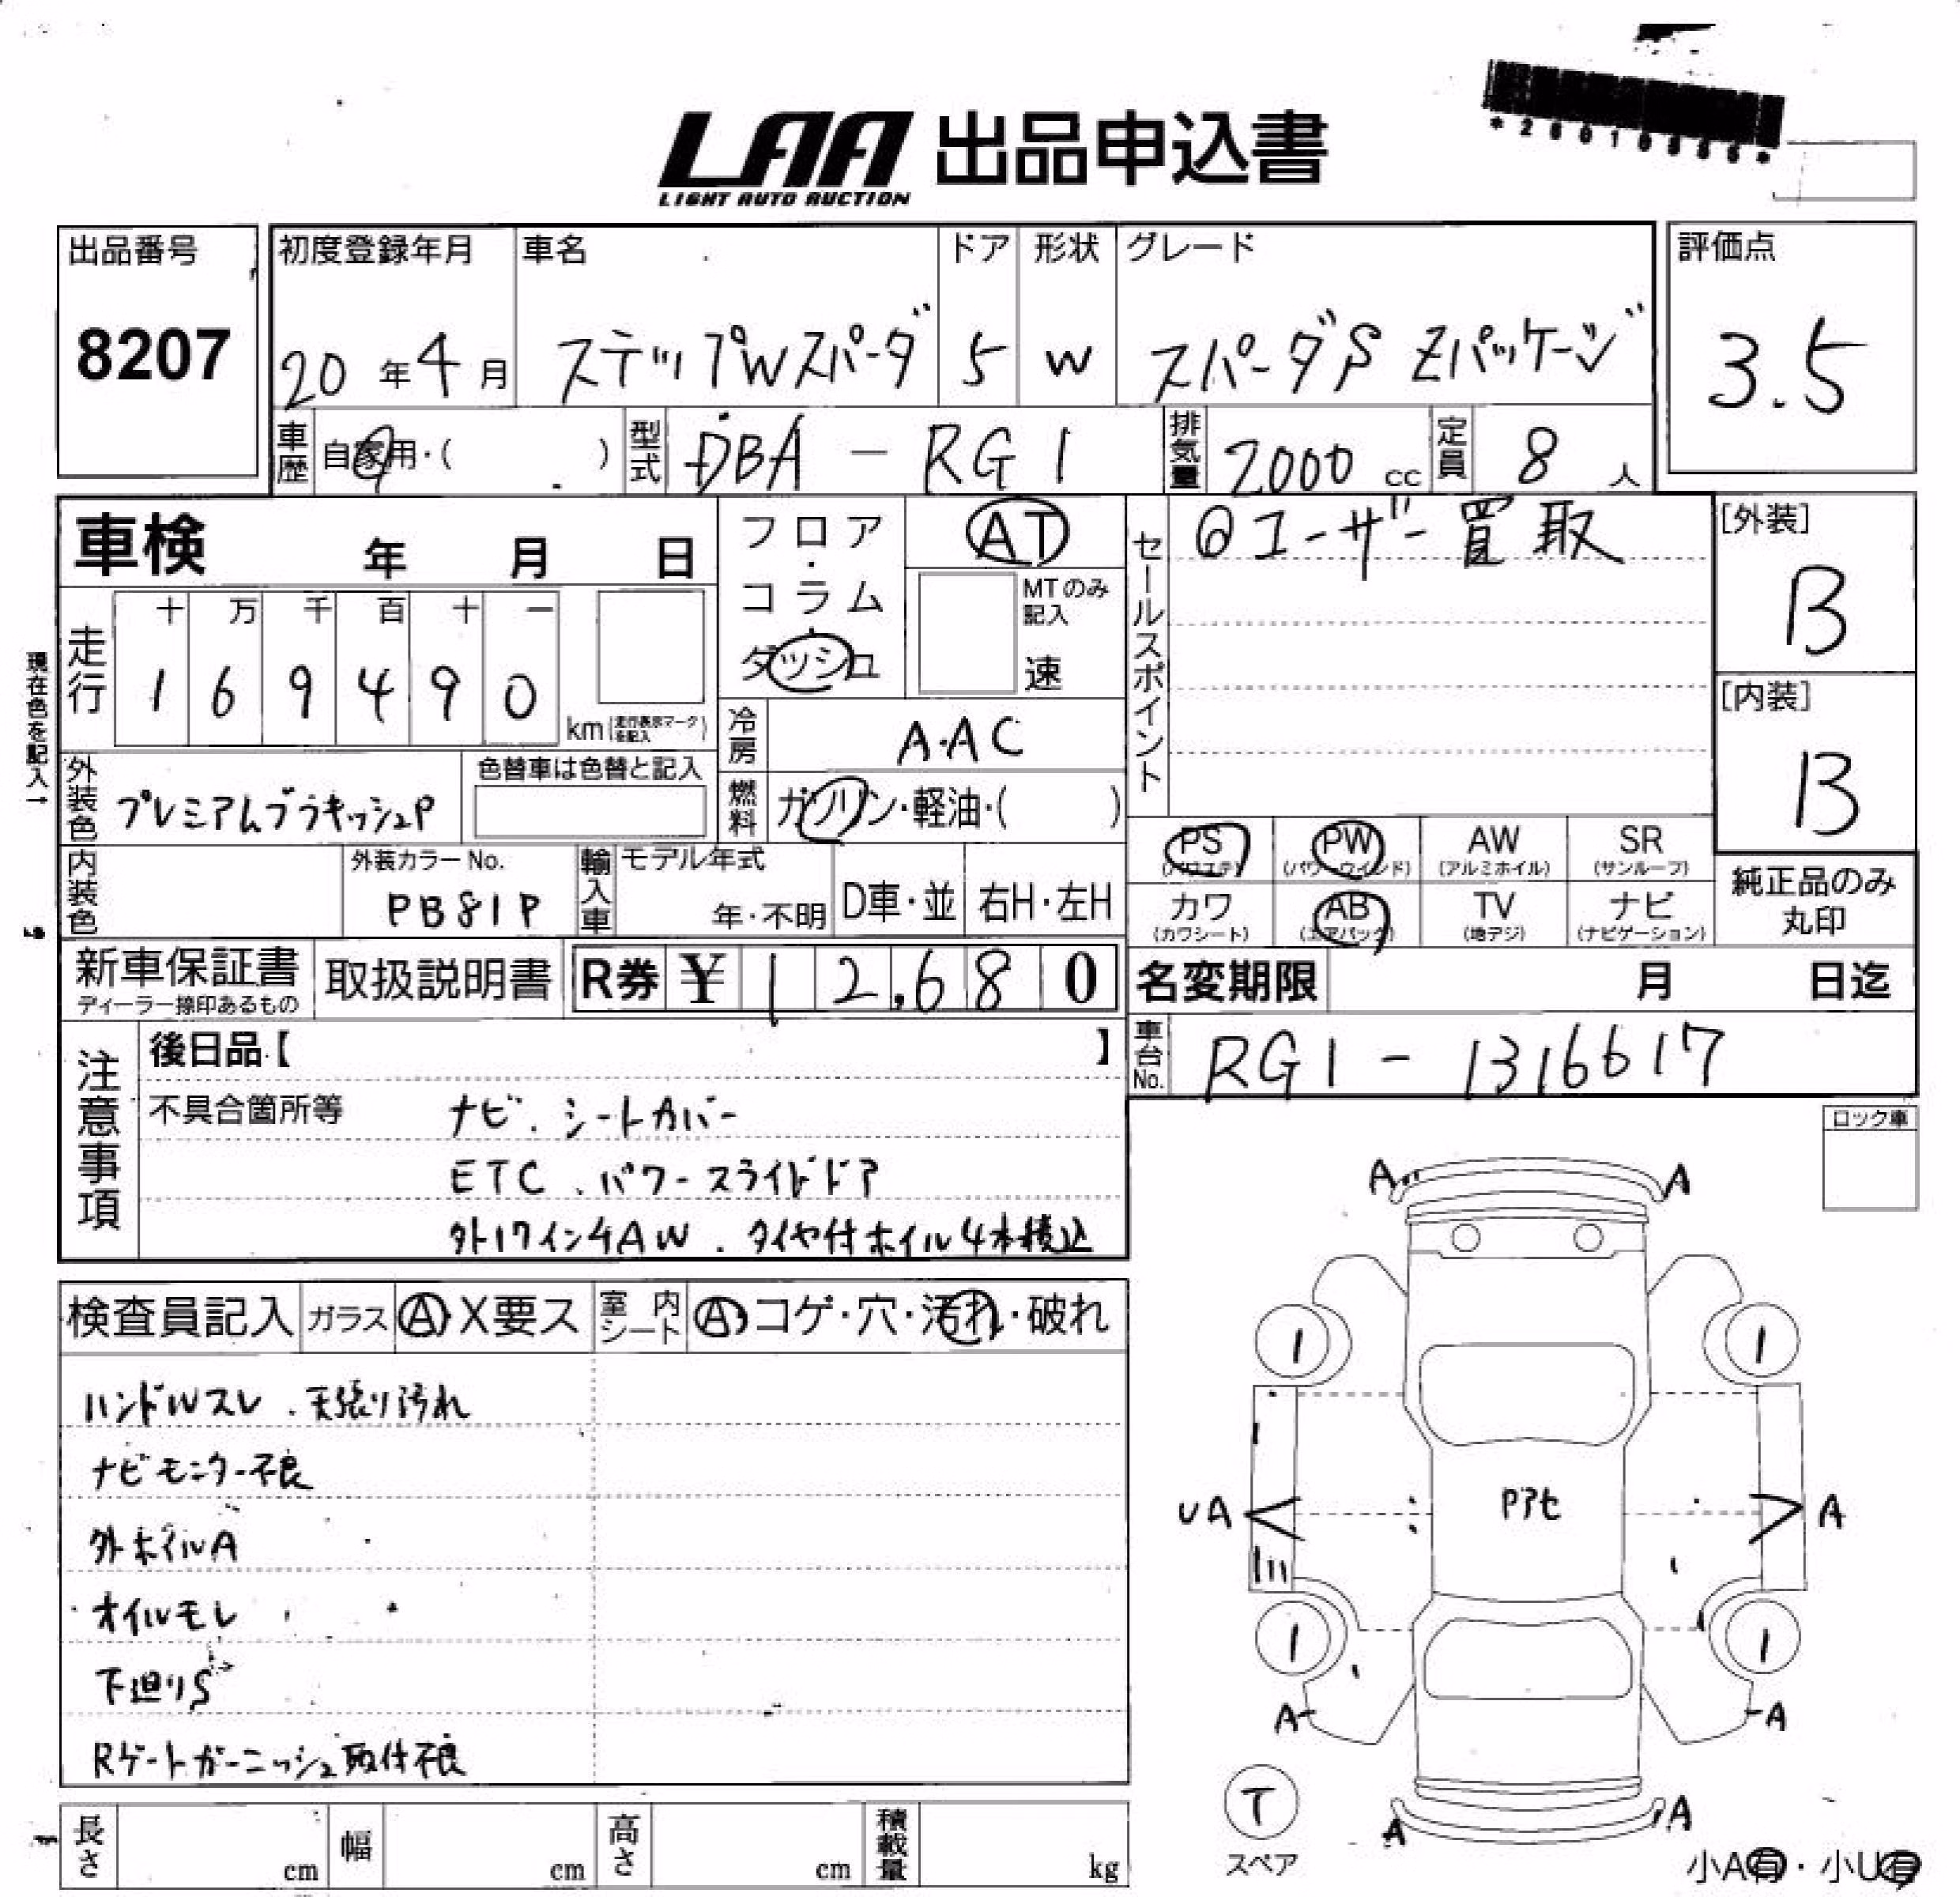 LAA 出品申込書
LIGHT AUTO AUCTION
出品番号
8207
初度登録年月
20年4月
車名
ステップWスパーダ
ドア
5
形状
W
グレード
スパーダS Zパッケージ
評価点
3.5
車歴
自家用・( )
型式
DBA - RG1
排気量
2000 cc
定員
8 人
車検 年 月 日
フロア・コラム・ダッシュ
AT
MTのみ記入
速
セールスポイント
@ユーザー買取
[外装]
B
[内装]
B
現在色を記入↑
走行
十 万 千 百 十 一
1 6 9 4 9 0
km(走行表示マークを記入)
冷房
A.AC
外装色
プレミアムブラキッシュP
色替車は色替と記入
燃料
ガソリン・軽油・( )
PS
(パワステ)
PW
(パワーウインド)
AW
(アルミホイル)
SR
(サンルーフ)
カワ
(カワシート)
AB
(エアバック)
TV
(地デジ)
ナビ
(ナビゲーション)
純正品のみ丸印
内装色
外装カラーNo.
PB81P
輸入車
モデル年式
年・不明
D車・並
右H・左H
新車保証書
ディーラー捺印あるもの
取扱説明書
R券 ¥ 12,680
名変期限 月 日迄
車台No.
RG1 - 1316617
注意事項
後日品【 】
不具合箇所等
ナビ.シートカバー
ETC、パワースライドドア
外17インチAW.タイヤ付ホイル4本積込
ロック車
検査員記入
ガラス
A X要ス
室内シート
A コゲ・穴・汚れ・破れ
ハンドルスレ.天張り汚れ
ナビモニター不良
外ホイルA
オイルモレ
下廻りS
Rゲートガーニッシュ取付不良
A A
1 1
UA Pアセ A
1 1
A A
T
スペア
A A
小A有・小U有
長さ cm
幅 cm
高さ cm
積載量 kg